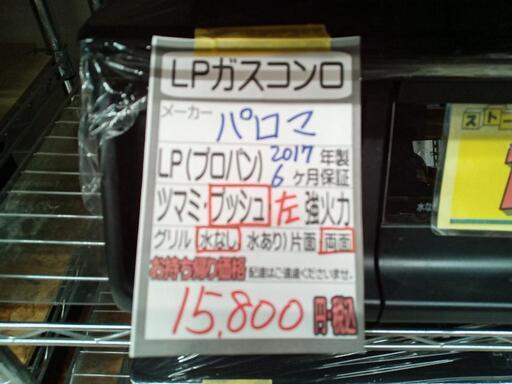 LPガスコンロ
メーカー パロマ
LP(プロパン) 2017年製
6ヶ月保証
ツマミ・プッシュ 左 強火力
グリル 水なし 水あり) 片面 両面
お持ち帰り価格 配達はご遠慮くださいませ。
15,800 円・税込
スト
水な